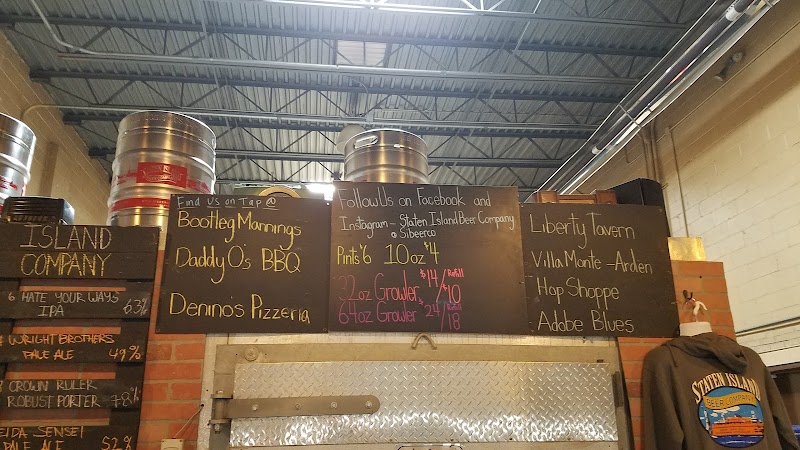 ISLAND
COMPANY
6 HATE YOUR WAYS
IPA 6.3%
WRIGHT BROTHERS
PALE ALE 4.9%
CROWN RULER
ROBUST PORTER 7.8%
SENSEI
PALE ALE 5.2%
Find Us on Tap @
Bootleg Mannings
Daddy O's BBQ
Denino's Pizzeria
Follow Us on Facebook and
Instagram - Staten Island Beer Company
@ Sibeerco
Pints $6 10oz $4
32oz Growler $14/Refill $10
64oz Growler $24/Refill 18
Liberty Tavern
Villa Monte - Arden
Hop Shoppe
Adobe Blues
STATEN ISLAND
BEER COMPANY